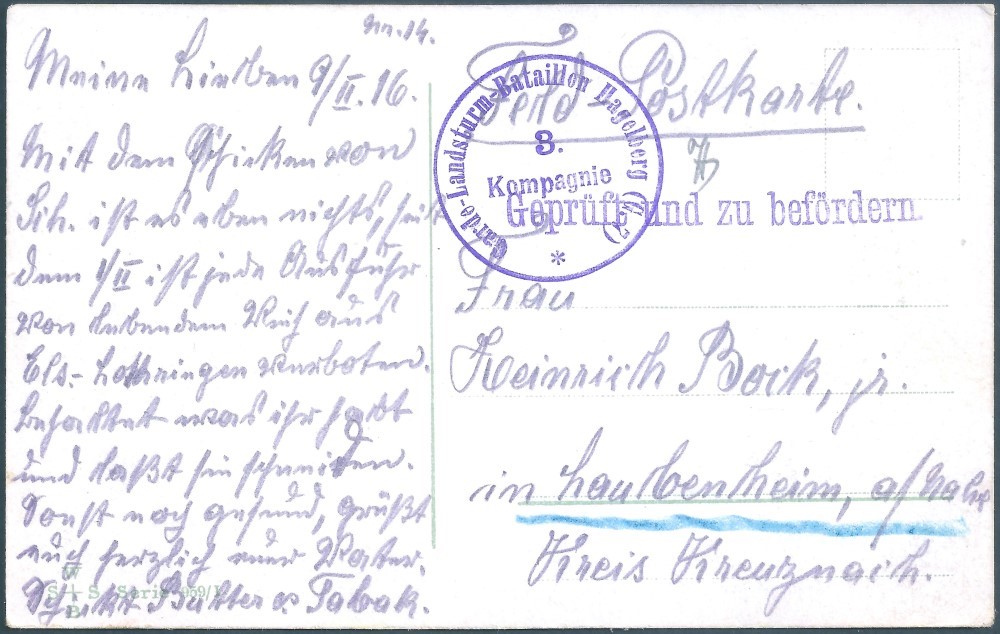 No. 14.
Meine Lieben 9/II.16.
Mit dem Schicken von
Sch. ist es eben nichts, seit
dem 1/II ist jede Ausfuhr
von lebendem Vieh aus
Els.-Lothringen verboten.
Behaltet was ihr habt
und laßt sie schneiden.
Sonst noch gesund, grüßt
euch herzlich euer Vater.
Schickt Butter & Tabak.
W
S+S Serie 969/
B
Feld-Postkarte.
Garde-Landsturm-Bataillon Hagelberg
3.
Kompagnie
*
Geprüft und zu befördern.
Frau
Heinrich Bock, jr.
in Laubenheim, a/Nahe
Kreis Kreuznach.